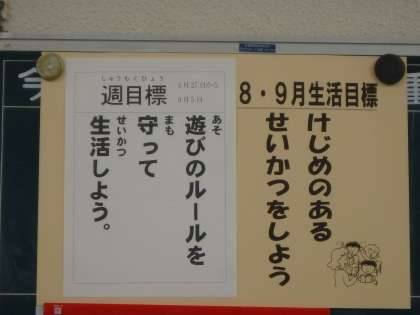 8・9月生活目標
けじめのある
せいかつをしよう
しゅうもくひょう
週目標
8月27日から
9月5日
あそ
遊びのルールを
まも
守って
せいかつ
生活しよう。
今